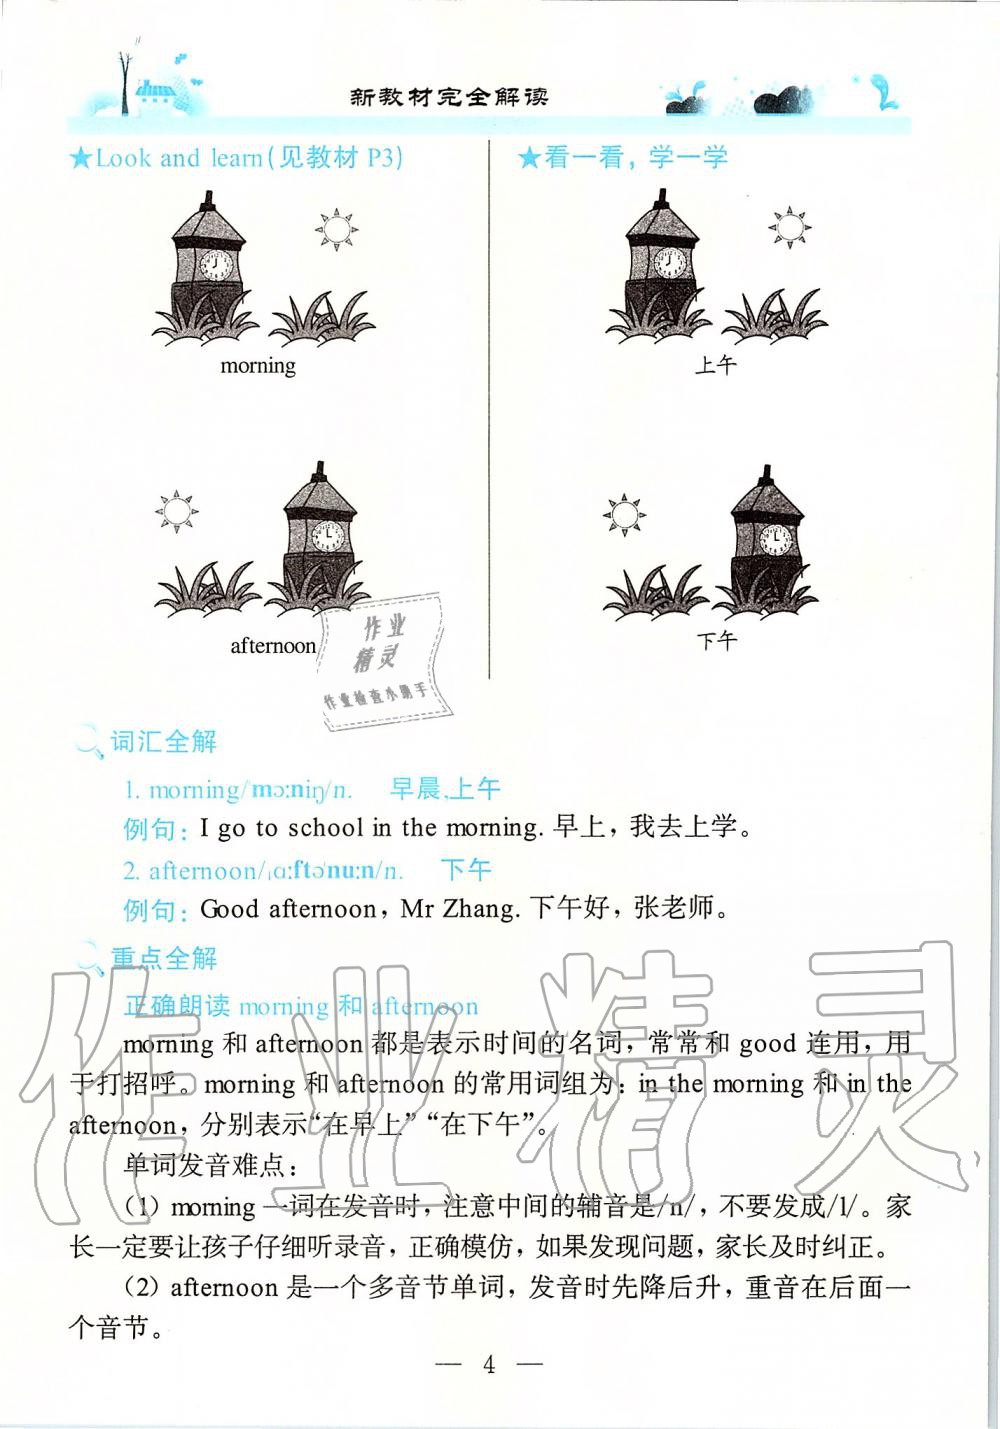 新教材完全解读
★Look and learn(见教材 P3)
morning
afternoon
★看一看，学一学
上午
下午
作业
精灵
作业检查小助手
词汇全解
1. morning/ˈmɔ:niŋ/n. 早晨，上午
例句：I go to school in the morning. 早上，我去上学。
2. afternoon/ˌɑ:ftəˈnu:n/n. 下午
例句：Good afternoon，Mr Zhang. 下午好，张老师。
重点全解
正确朗读 morning 和 afternoon
morning 和 afternoon 都是表示时间的名词，常常和 good 连用，用
于打招呼。morning 和 afternoon 的常用词组为：in the morning 和 in the
afternoon，分别表示“在早上”“在下午”。
单词发音难点：
（1）morning 一词在发音时，注意中间的辅音是/n/，不要发成/l/。家
长一定要让孩子仔细听录音，正确模仿，如果发现问题，家长及时纠正。
（2）afternoon 是一个多音节单词，发音时先降后升，重音在后面一
个音节。
作业精灵
— 4 —